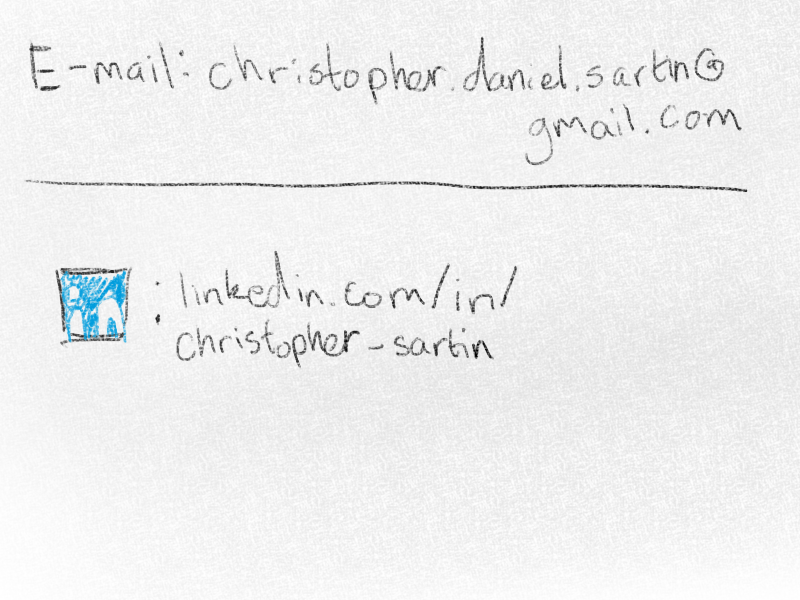 E-mail: christopher.daniel.sartin@
gmail.com
in
: linkedin.com/in/
christopher-sartin